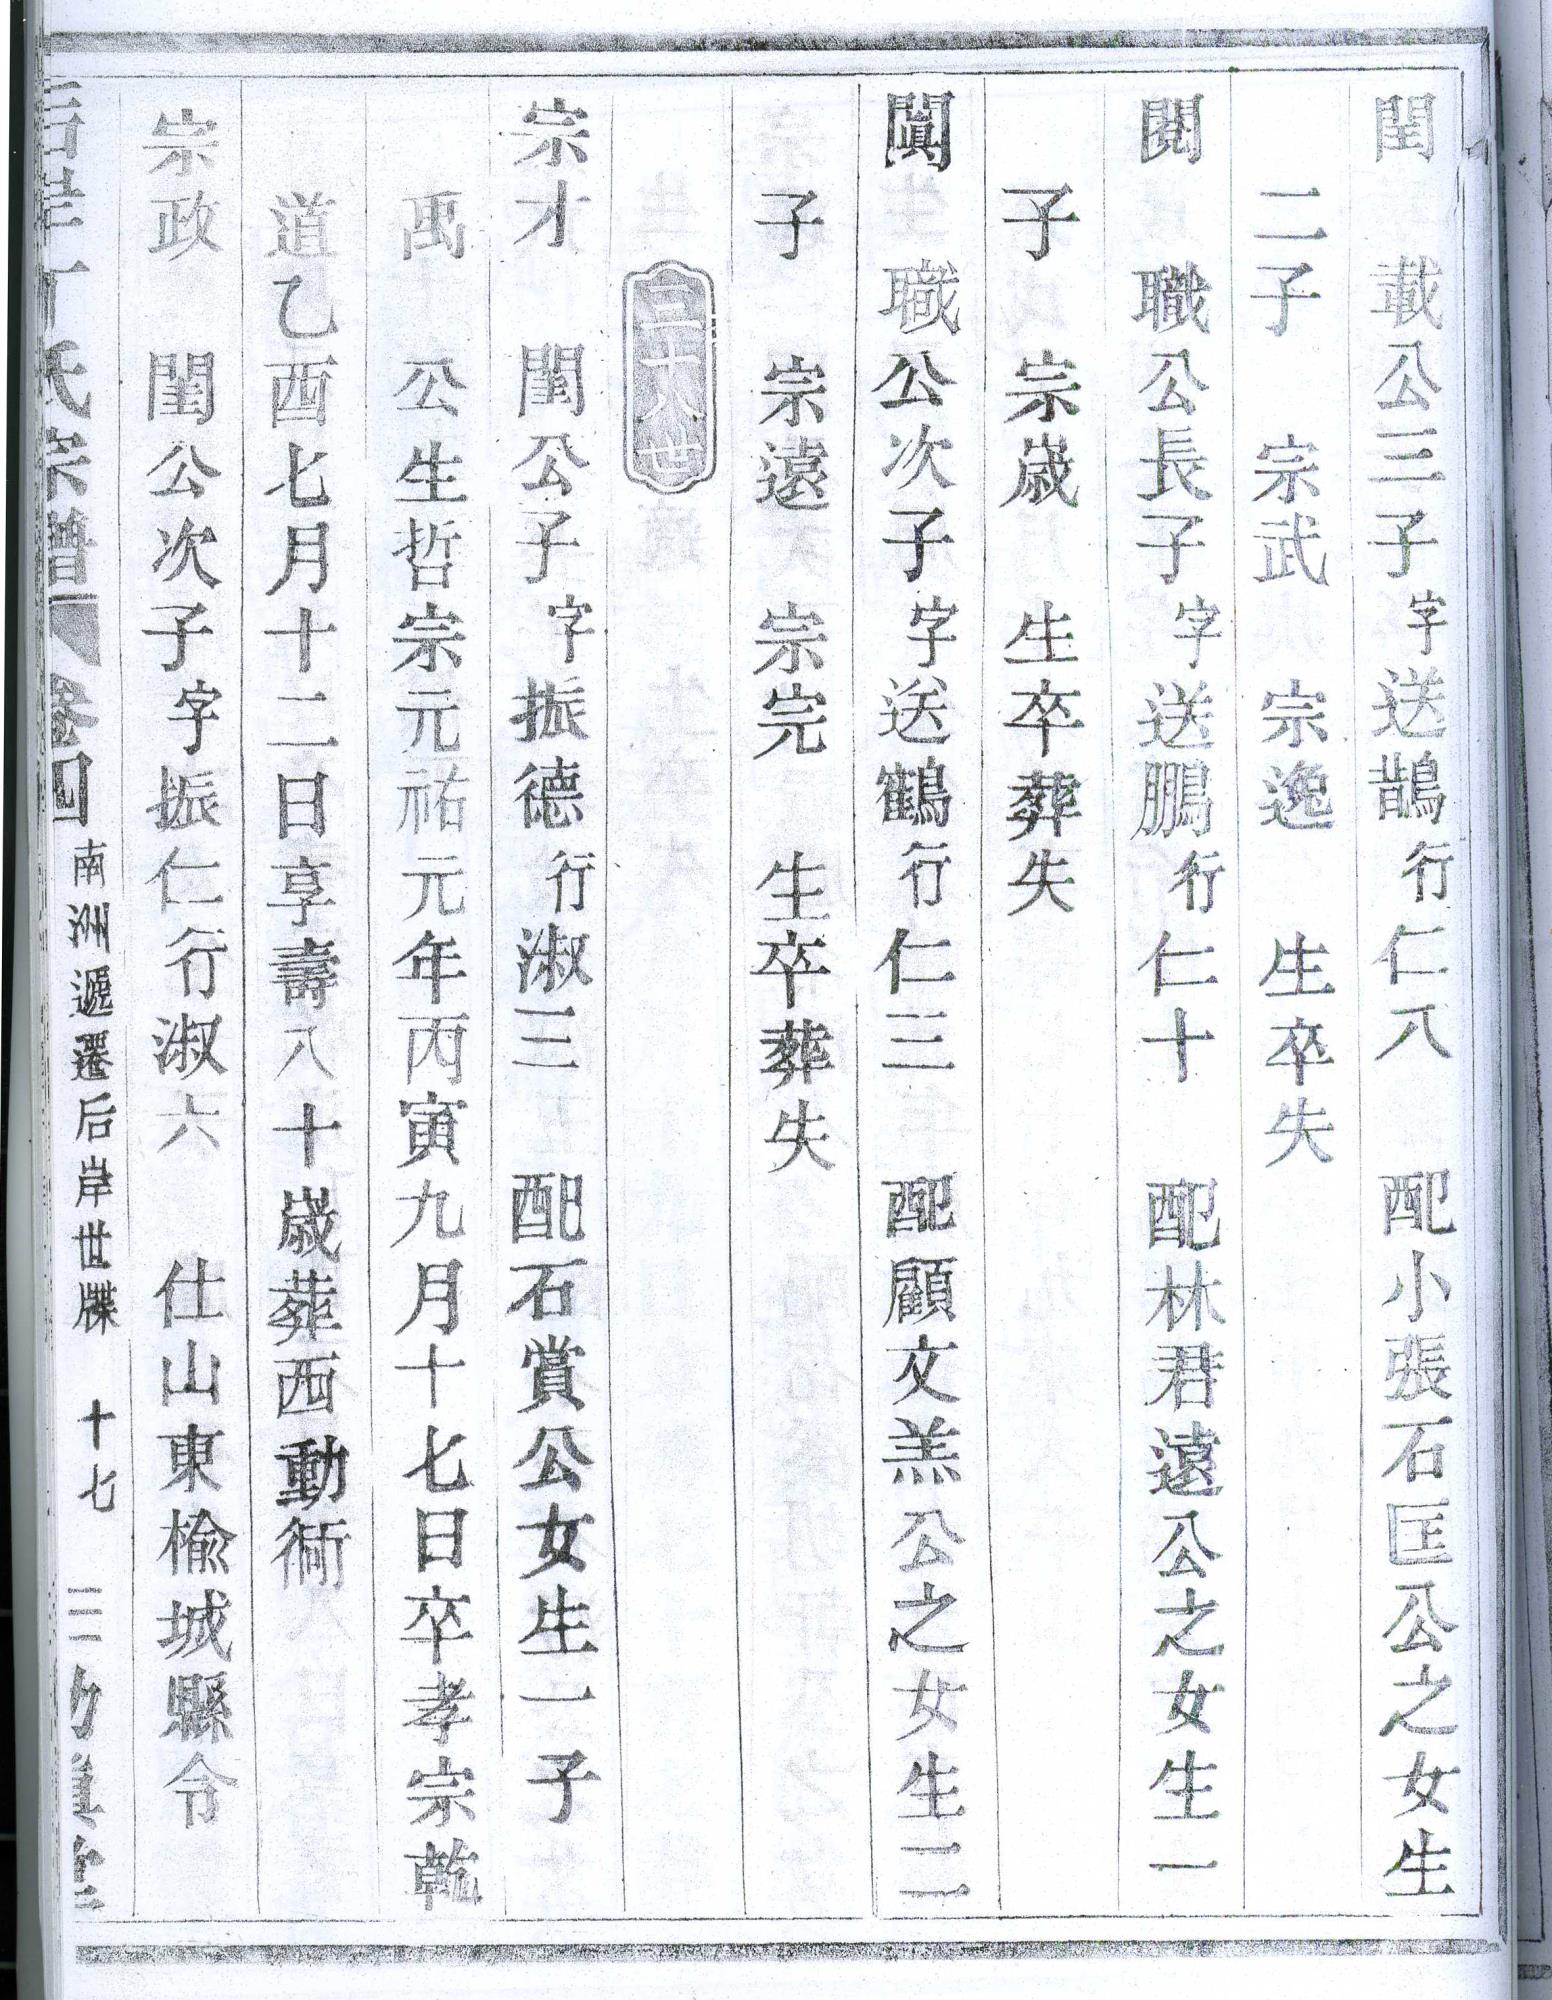 閏 載公三子字送鵲行仁八 配小張石匡公之女生
二子 宗武 宗逸 生卒失
閱 職公長子字送鵬行仁十 配林君遠公之女生一
子 宗歲 生卒葬失
闐 職公次子字送鶴行仁三 配顧文羔公之女生二
子 宗遠 宗完 生卒葬失
三十八世
宗才 閨公子字振德行淑三 配石賞公女生一子
禹 公生哲宗元祐元年丙寅九月十七日卒孝宗乾
道乙酉七月十二日享壽八十歲葬西動衕
宗政 閨公次子字振仁行淑六 仕山東榆城縣令
后岸丁氏宗譜 卷四 南洲遞遷后岸世牒 十七